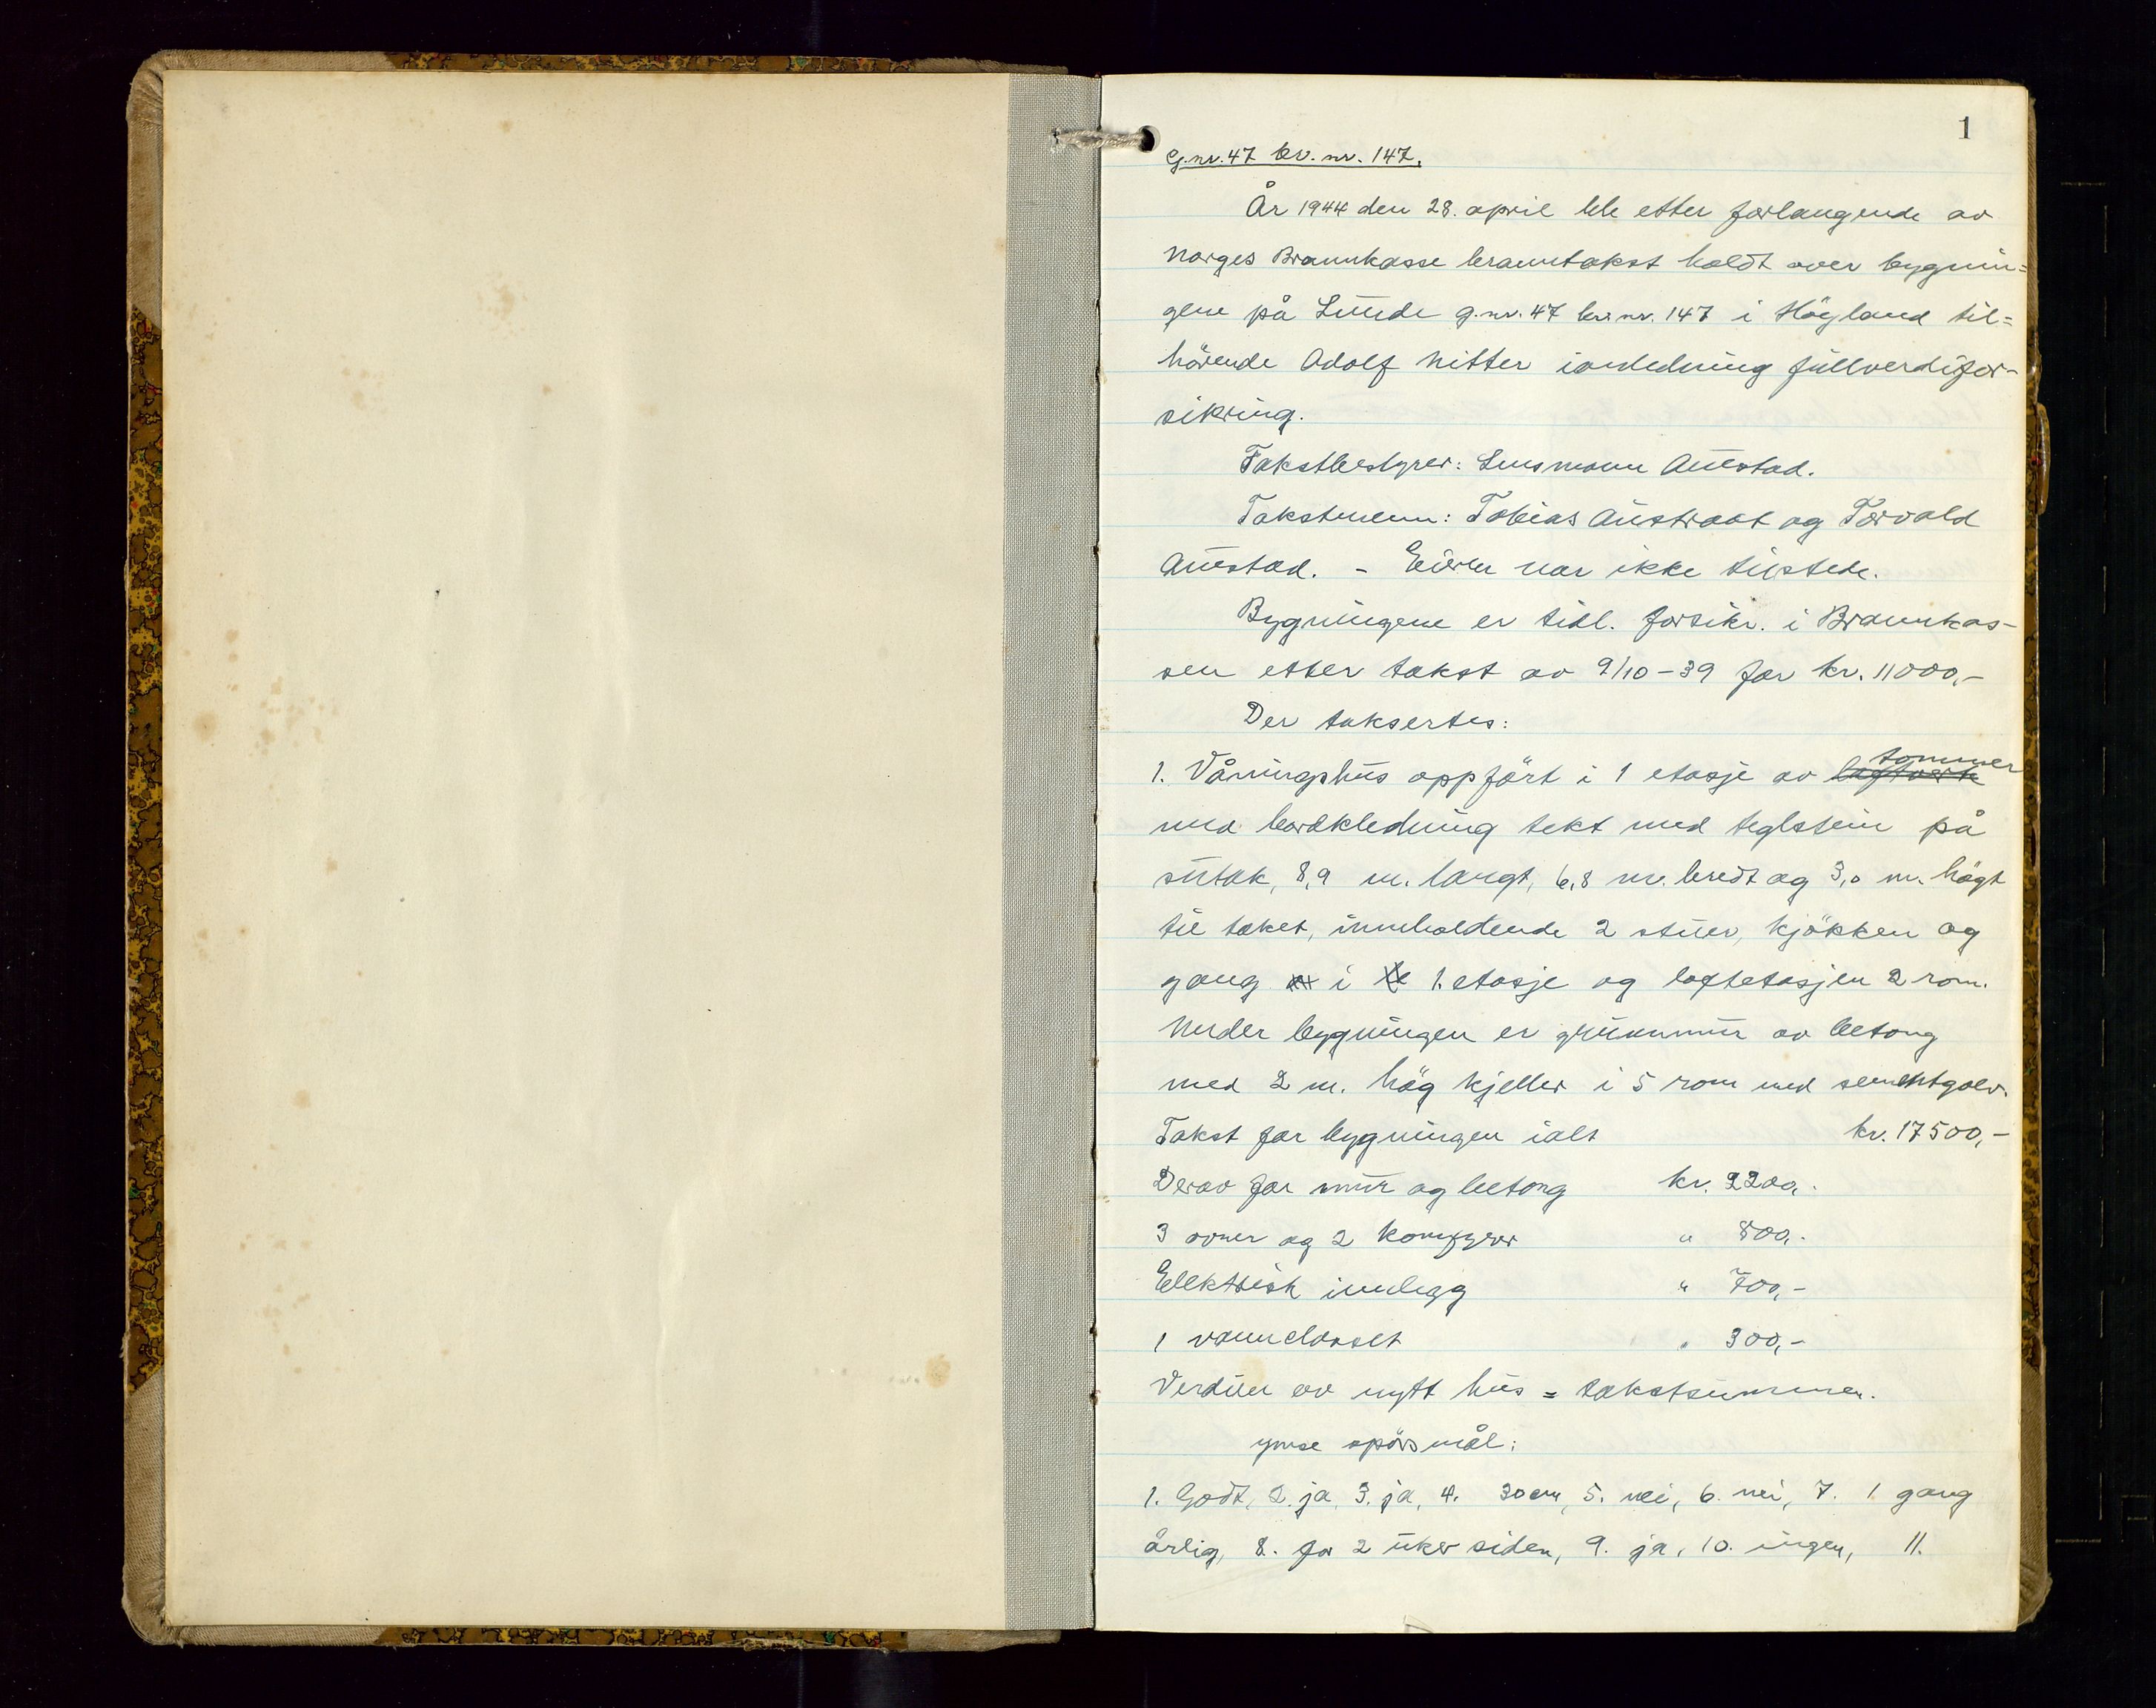 1
G.nr. 47 br. nr. 147.
År 1944 den 28. april ble etter forlangende av
Norges Brannkasse branntakst holdt over bygnin=
gene på Lunde g.nr. 47 br.nr. 147 i Höyland til=
hörende Adolf Nitter ianledning fullverdifor-
sikring.
Takstbestyrer: Lensmann Aurstad.
Takstmenn: Tobias Austraat og Torvald
Aurstad. - Eieren var ikke tilstede.
Bygningene er tidl. forsikr. i Brannkas-
sen etter takst av 9/10-39 for kr. 11000,-
Der taksertes:
1. Våningshus oppfört i 1 etasje av laftverk tømmer
med bordkledning tekt med teglstein på
sutak, 8,9 m. langt, 6,8 m. bredt og 3,0 m. högt
til taket, inneholdende 2 stuer, kjökken og
gang i 1. etasje og loftetasjen 2 rom.
Under bygningen er grunnmur av betong
med 2 m. hög kjeller i 5 rom med sementgolv.
Takst for bygningen ialt kr. 17500,-
Derav for mur og betong kr. 2200,-
3 ovner og 2 komfyrer " 800,-
Elektrisk innlegg " 700,-
1 vannclosett " 300,-
Verdien av nytt hus = takstsummen.
Ymse spörsmål:
1. Godt, 2. ja, 3. ja, 4. 30 cm, 5. nei, 6. nei, 7. 1 gang
årlig, 8. for 2 uker siden, 9. ja, 10. ingen, 11.